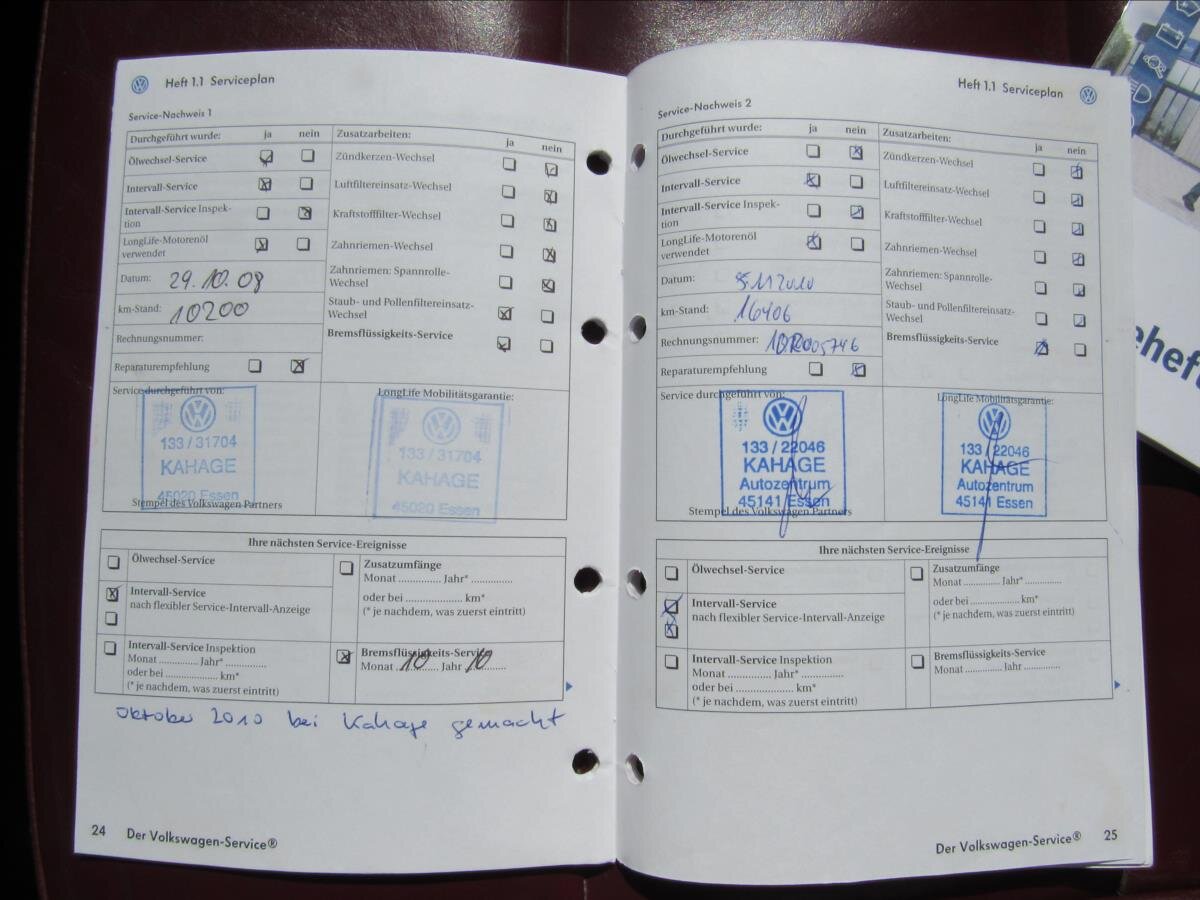 Heft 1.1 Serviceplan
Service-Nachweis 1
Durchgeführt wurde: ja nein
Ölwechsel-Service
Intervall-Service
Intervall-Service Inspek-
tion
LongLife-Motorenöl
verwendet
Datum: 29.10.08
km-Stand: 10200
Rechnungsnummer:
Reparaturempfehlung
Zusatzarbeiten:
ja nein
Zündkerzen-Wechsel
Luftfiltereinsatz-Wechsel
Kraftstofffilter-Wechsel
Zahnriemen-Wechsel
Zahnriemen: Spannrolle-
Wechsel
Staub- und Pollenfiltereinsatz-
Wechsel
Bremsflüssigkeits-Service
Service durchgeführt von:
133 / 31704
KAHAGE
45020 Essen
Stempel des Volkswagen Partners
LongLife Mobilitätsgarantie:
133 / 31704
KAHAGE
45020 Essen
Ihre nächsten Service-Ereignisse
Ölwechsel-Service
Intervall-Service
nach flexibler Service-Intervall-Anzeige
Intervall-Service Inspektion
Monat ............. Jahr* .............
oder bei .................... km*
(* je nachdem, was zuerst eintritt)
Zusatzumfänge
Monat ............. Jahr* .............
oder bei .................... km*
(* je nachdem, was zuerst eintritt)
Bremsflüssigkeits-Service
Monat 10 Jahr 10
Oktober 2010 bei Kahage gemacht
24 Der Volkswagen-Service®
Heft 1.1 Serviceplan
Service-Nachweis 2
Durchgeführt wurde: ja nein
Ölwechsel-Service
Intervall-Service
Intervall-Service Inspek-
tion
LongLife-Motorenöl
verwendet
Datum: 2010
km-Stand: 16406
Rechnungsnummer: 10R005746
Reparaturempfehlung
Zusatzarbeiten:
ja nein
Zündkerzen-Wechsel
Luftfiltereinsatz-Wechsel
Kraftstofffilter-Wechsel
Zahnriemen-Wechsel
Zahnriemen: Spannrolle-
Wechsel
Staub- und Pollenfiltereinsatz-
Wechsel
Bremsflüssigkeits-Service
Service durchgeführt von:
133 / 22046
KAHAGE
Autozentrum
45141 Essen
Stempel des Volkswagen Partners
LongLife Mobilitätsgarantie:
133 / 22046
KAHAGE
Autozentrum
45141 Essen
Ihre nächsten Service-Ereignisse
Ölwechsel-Service
Intervall-Service
nach flexibler Service-Intervall-Anzeige
Intervall-Service Inspektion
Monat ............. Jahr* .............
oder bei .................... km*
(* je nachdem, was zuerst eintritt)
Zusatzumfänge
Monat ............. Jahr* .............
oder bei .................... km*
(* je nachdem, was zuerst eintritt)
Bremsflüssigkeits-Service
Monat ............. Jahr .............
Der Volkswagen-Service® 25